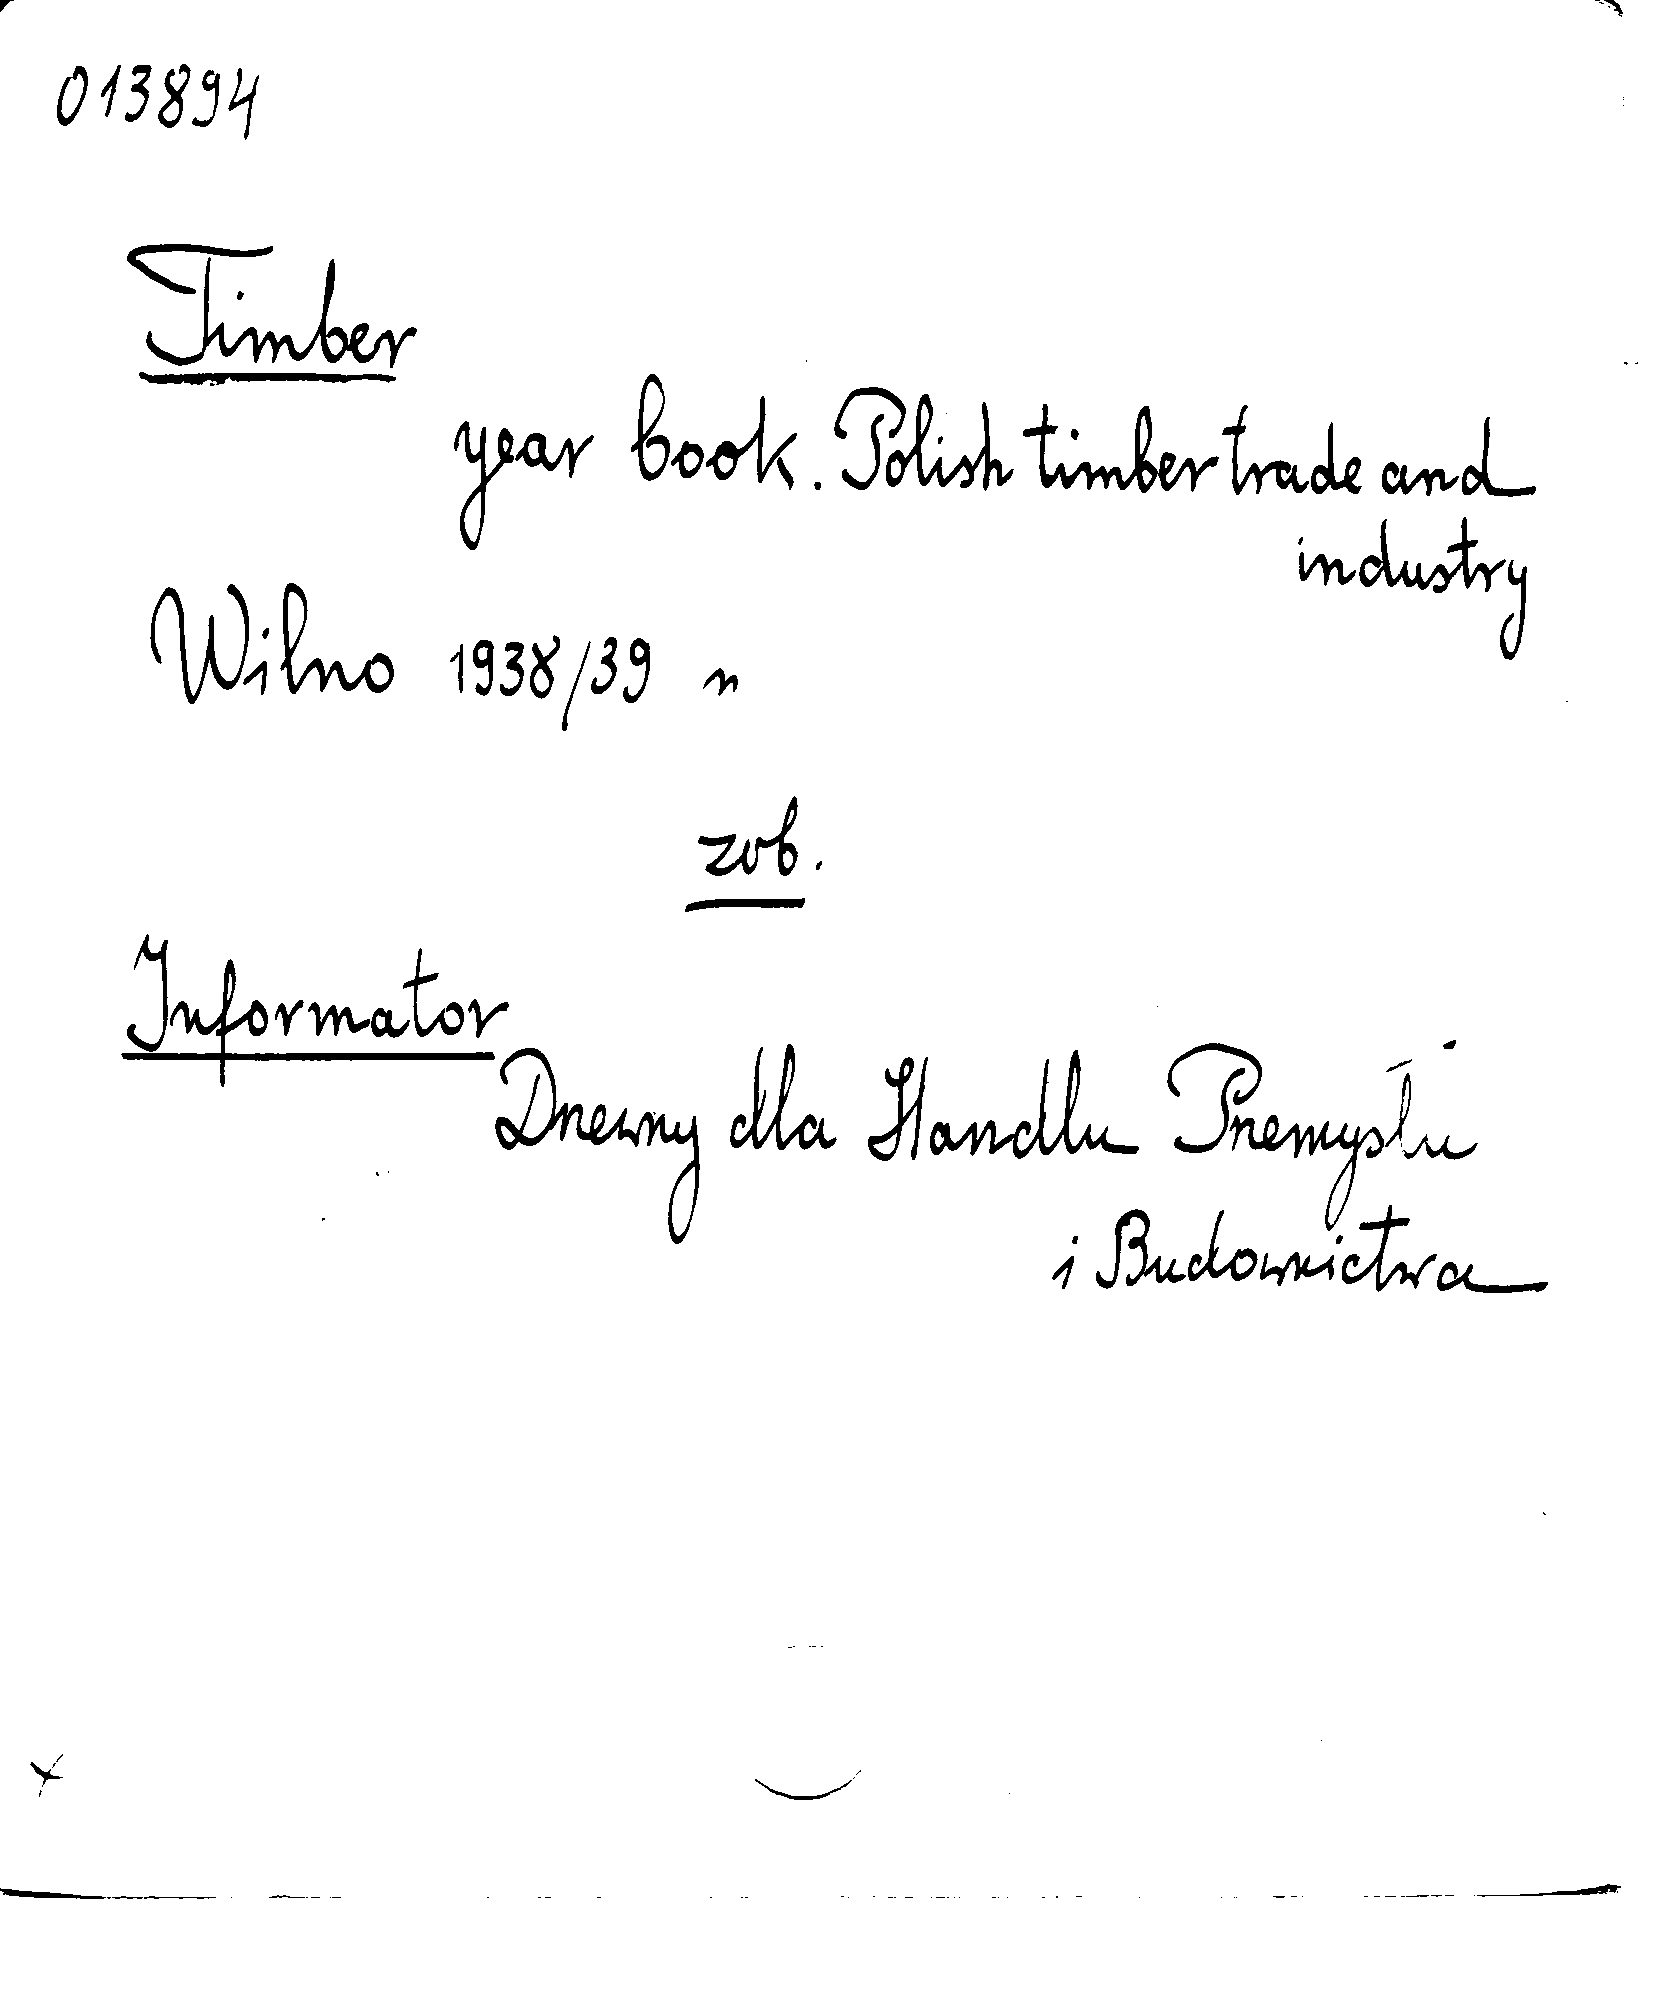 013894
Timber
year book. Polish timber trade and
industry
Wilno 1938/39 n
zob.
Informator
Drzewny dla Handlu Przemysłu
i Budownictwa